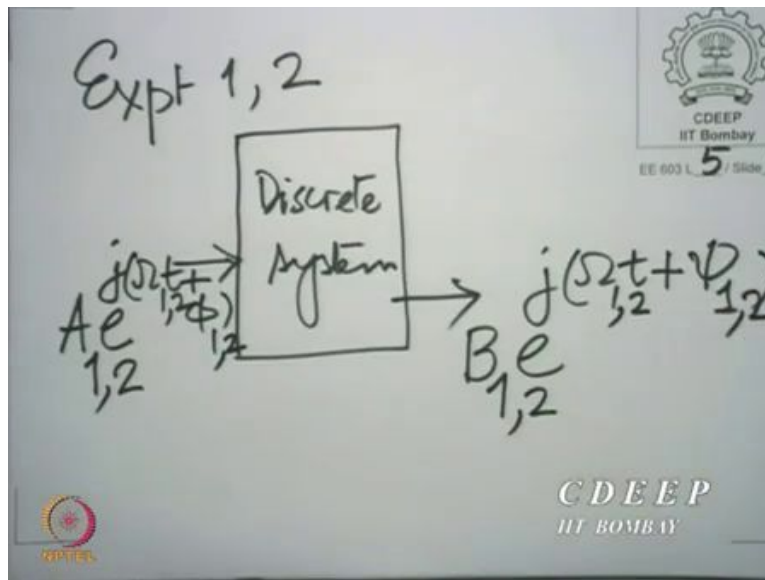 Expt 1, 2
CDEEP
IIT Bombay
EE 603 L 5 / Slide
Discrete
system
A₁,₂ e^j(Ω₁,₂t + Φ₁,₂)
B₁,₂ e^j(Ω₁,₂t + Ψ₁,₂)
CDEEP
IIT BOMBAY
NPTEL